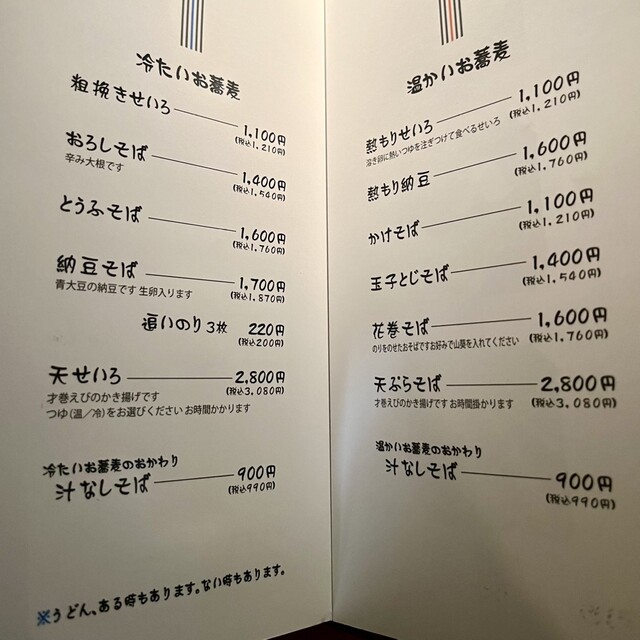 冷たいお蕎麦
粗挽きせいろ 1,100円
(税込1,210円)
おろしそば 1,400円
辛み大根です (税込1,540円)
とうふそば 1,600円
(税込1,760円)
納豆そば 1,700円
青大豆の納豆です 生卵入ります (税込1,870円)
追いのり 3枚 220円
(税込200円)
天せいろ 2,800円
才巻えびのかき揚げです (税込3,080円)
つゆ(温/冷)をお選びください お時間かかります
冷たいお蕎麦のおかわり
汁なしそば 900円
(税込990円)
※うどん、ある時もあります。ない時もあります。
温かいお蕎麦
熱もりせいろ 1,100円
溶き卵に熱いつゆを注ぎつけて食べるせいろ (税込1,210円)
熱もり納豆 1,600円
(税込1,760円)
かけそば 1,100円
(税込1,210円)
玉子とじそば 1,400円
(税込1,540円)
花巻そば 1,600円
のりをのせたおそばですお好みで山葵を入れてください (税込1,760円)
天ぷらそば 2,800円
才巻えびのかき揚げです お時間掛かります (税込3,080円)
温かいお蕎麦のおかわり
汁なしそば 900円
(税込990円)